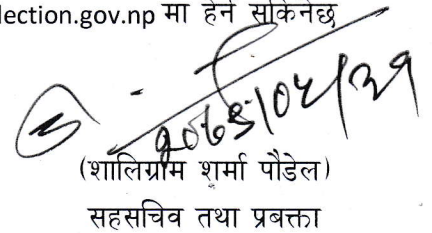 lection.gov.np मा हेर्न सकिनेछ
(शालिग्राम शर्मा पौडेल)
सहसचिव तथा प्रबक्ता